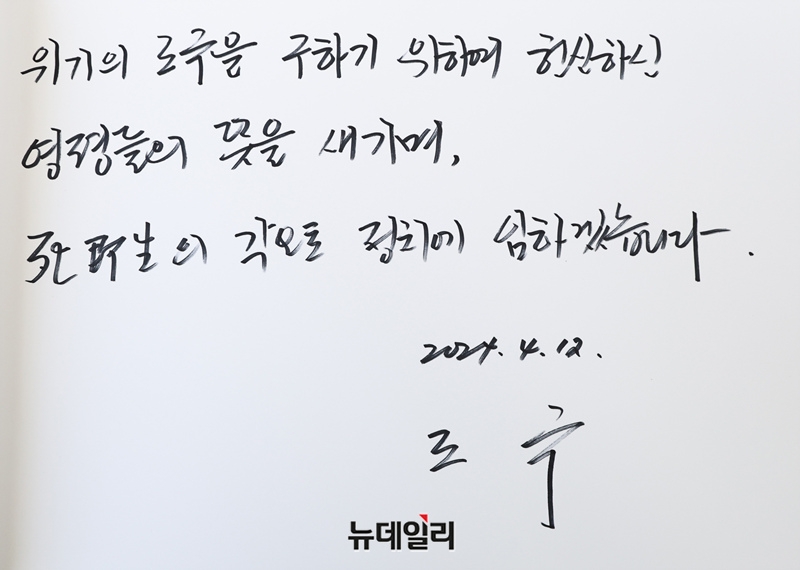 위기의 조국을 구하기 위하여 헌신하신
영령들의 뜻을 새기며,
死則生의 각오로 정치에 임하겠습니다.
2024. 4. 12.
조 국
뉴데일리